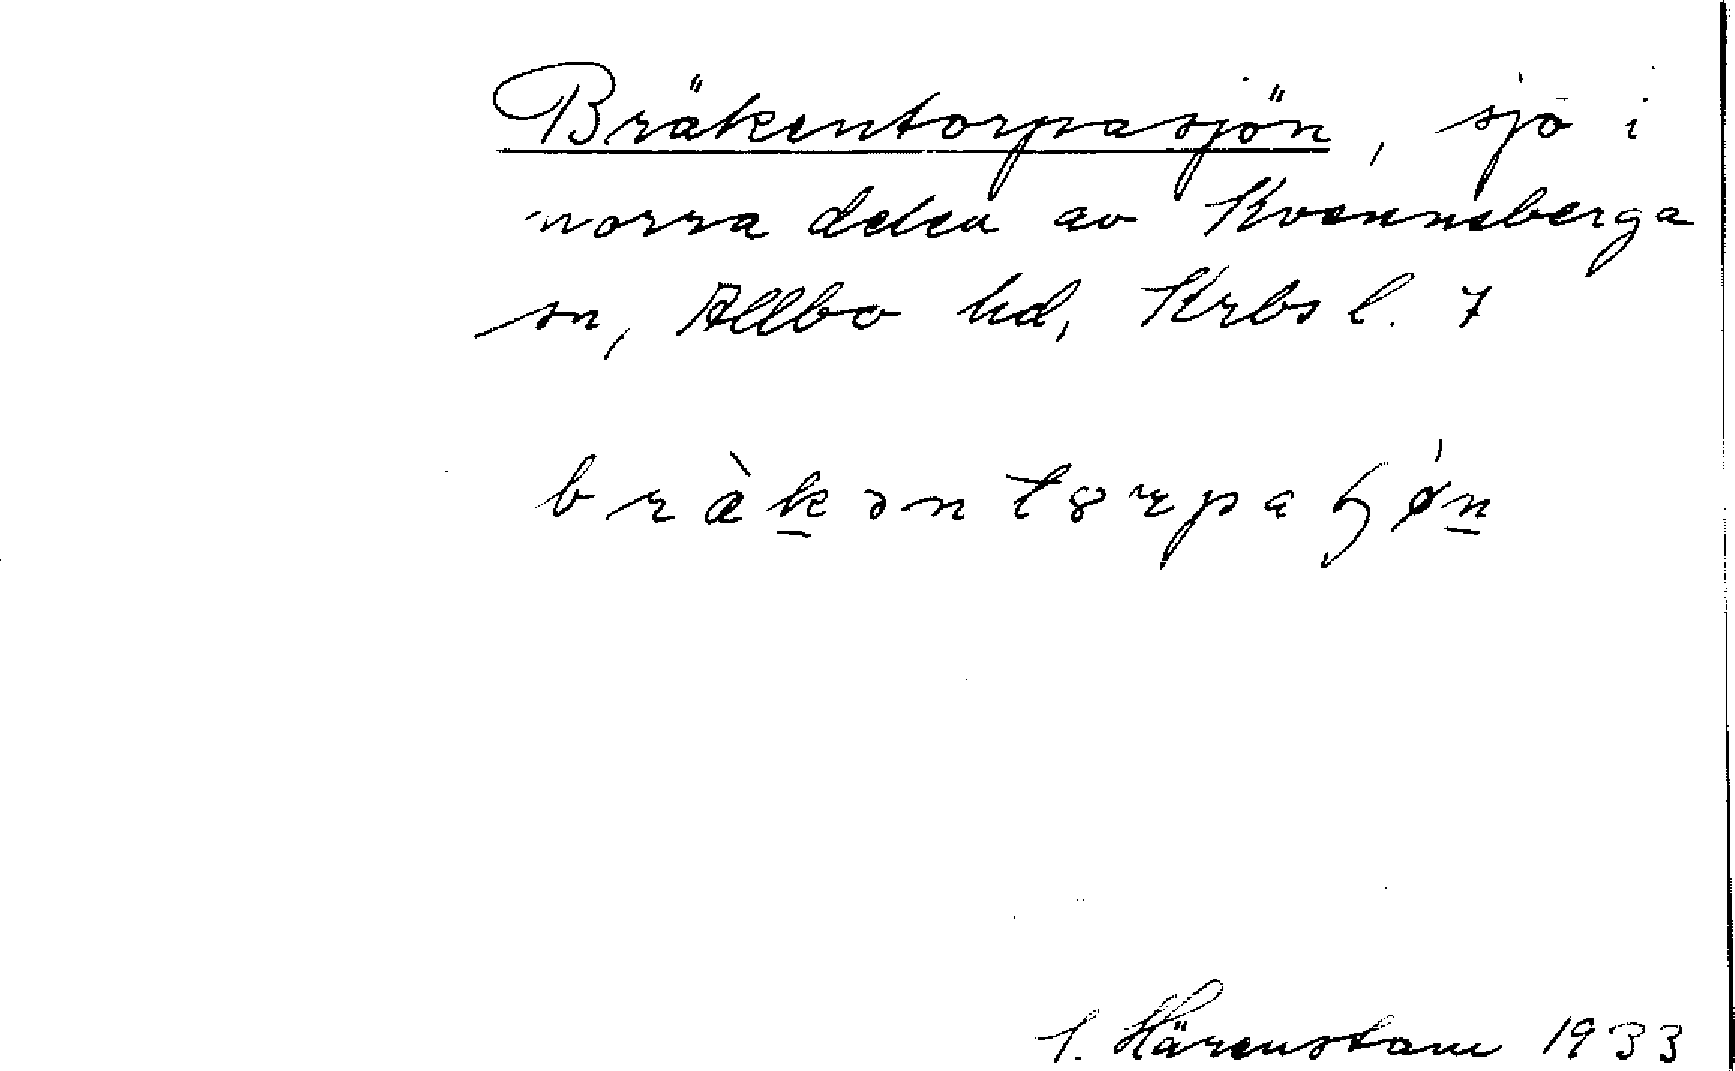 Bräkentorpasjön, sjö i
norra delen av Kvenneberga
sn, Allbo hd, Krbs l. 7
bràkəntȣrpaɧǿn
S. Härenstam 1933